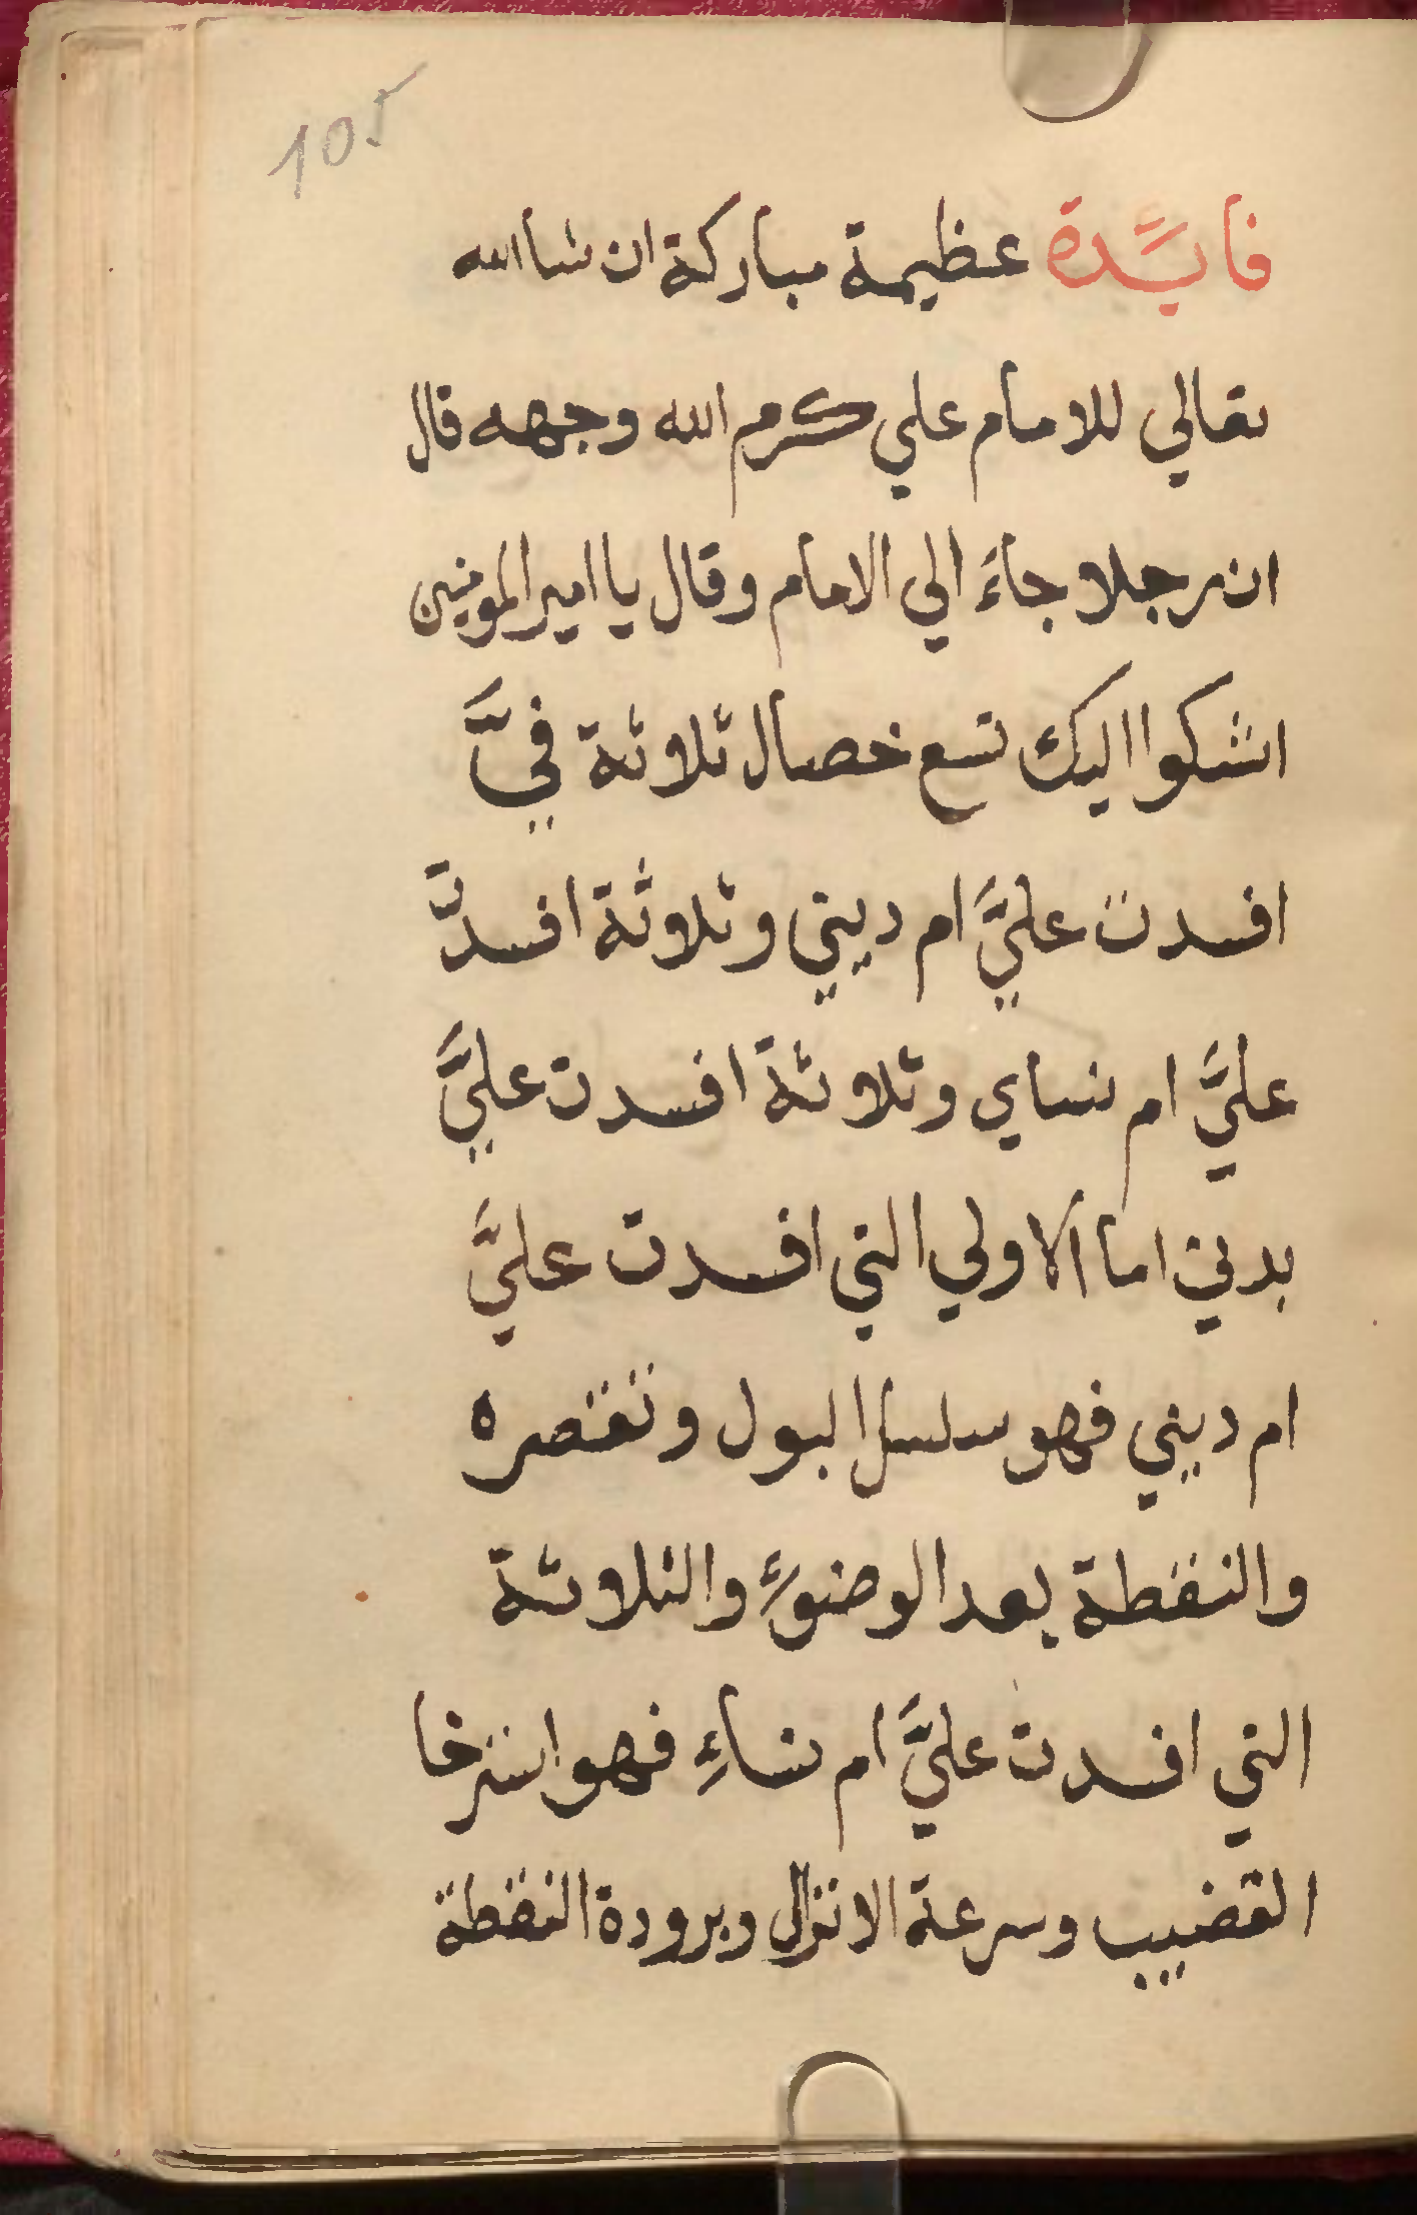 105
فايدة عظيمة مباركة ان شا الله
تعالي للامام علي كرم الله وجهه قال
ان رجلا جاءَ الي الامام وقال يا امير المومنين
اشكوا اليك تسع خصال ثلاثة فيَّ
افسدت عليَّ ام ديني وثلاثة افسدت
عليَّ ام نساي وثلاثة افسدت عليَّ
بدني اما الاولي التي افسدت عليَّ
ام ديني فهو سلسل البول وتقصره
والنقطة بعد الوضوءِ والثلاثة
التي افسدت عليَّ ام نساءِ فهو استرخا
القضيب وسرعة الانزال وبرودة النقطة